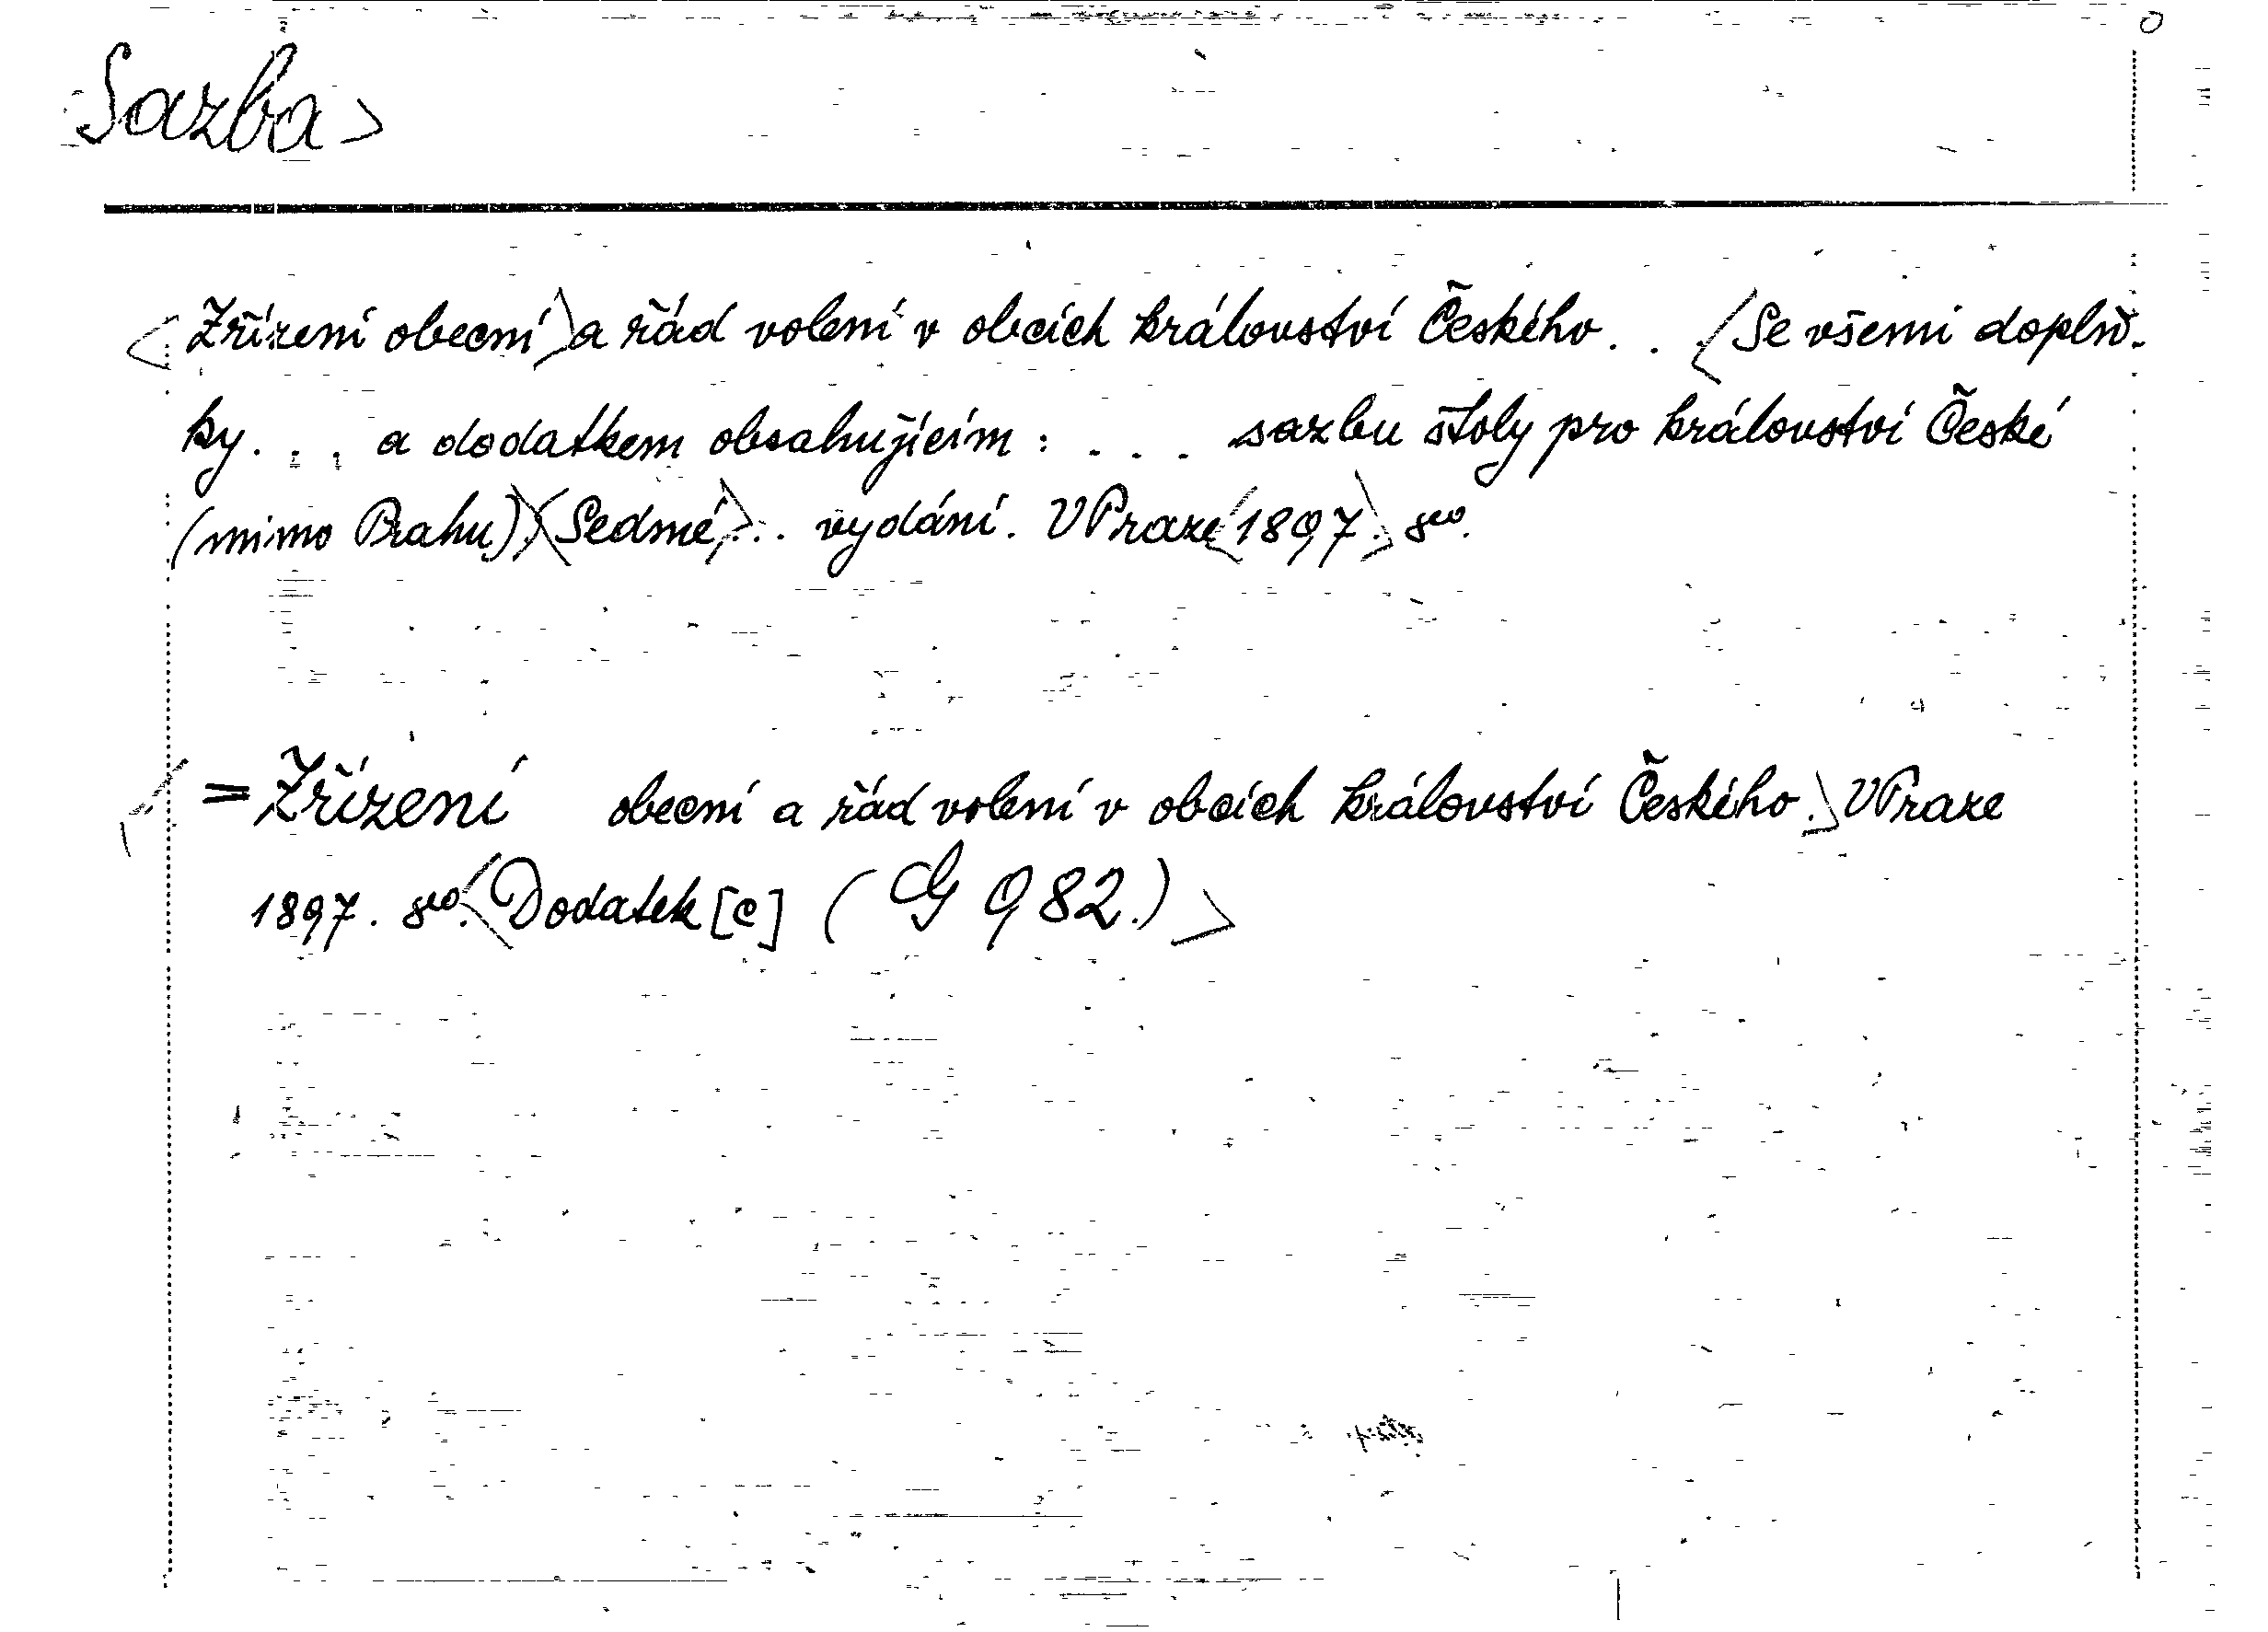 Sazba>
<Zřízení obecní> a řád volení v obcích království Českého . . . <Se všemi doplň-
ky . . . a dodatkem obsahujícím : . . . sazbu štoly pro království České
(mimo Prahu).> <Sedmé> . . . vydání. V Praze <1897.> 8vo.
<= Zřízení obecní a řád volení v obcích království Českého.> V Praze
1897. 8vo. <Dodatek [c] (G 982.)>